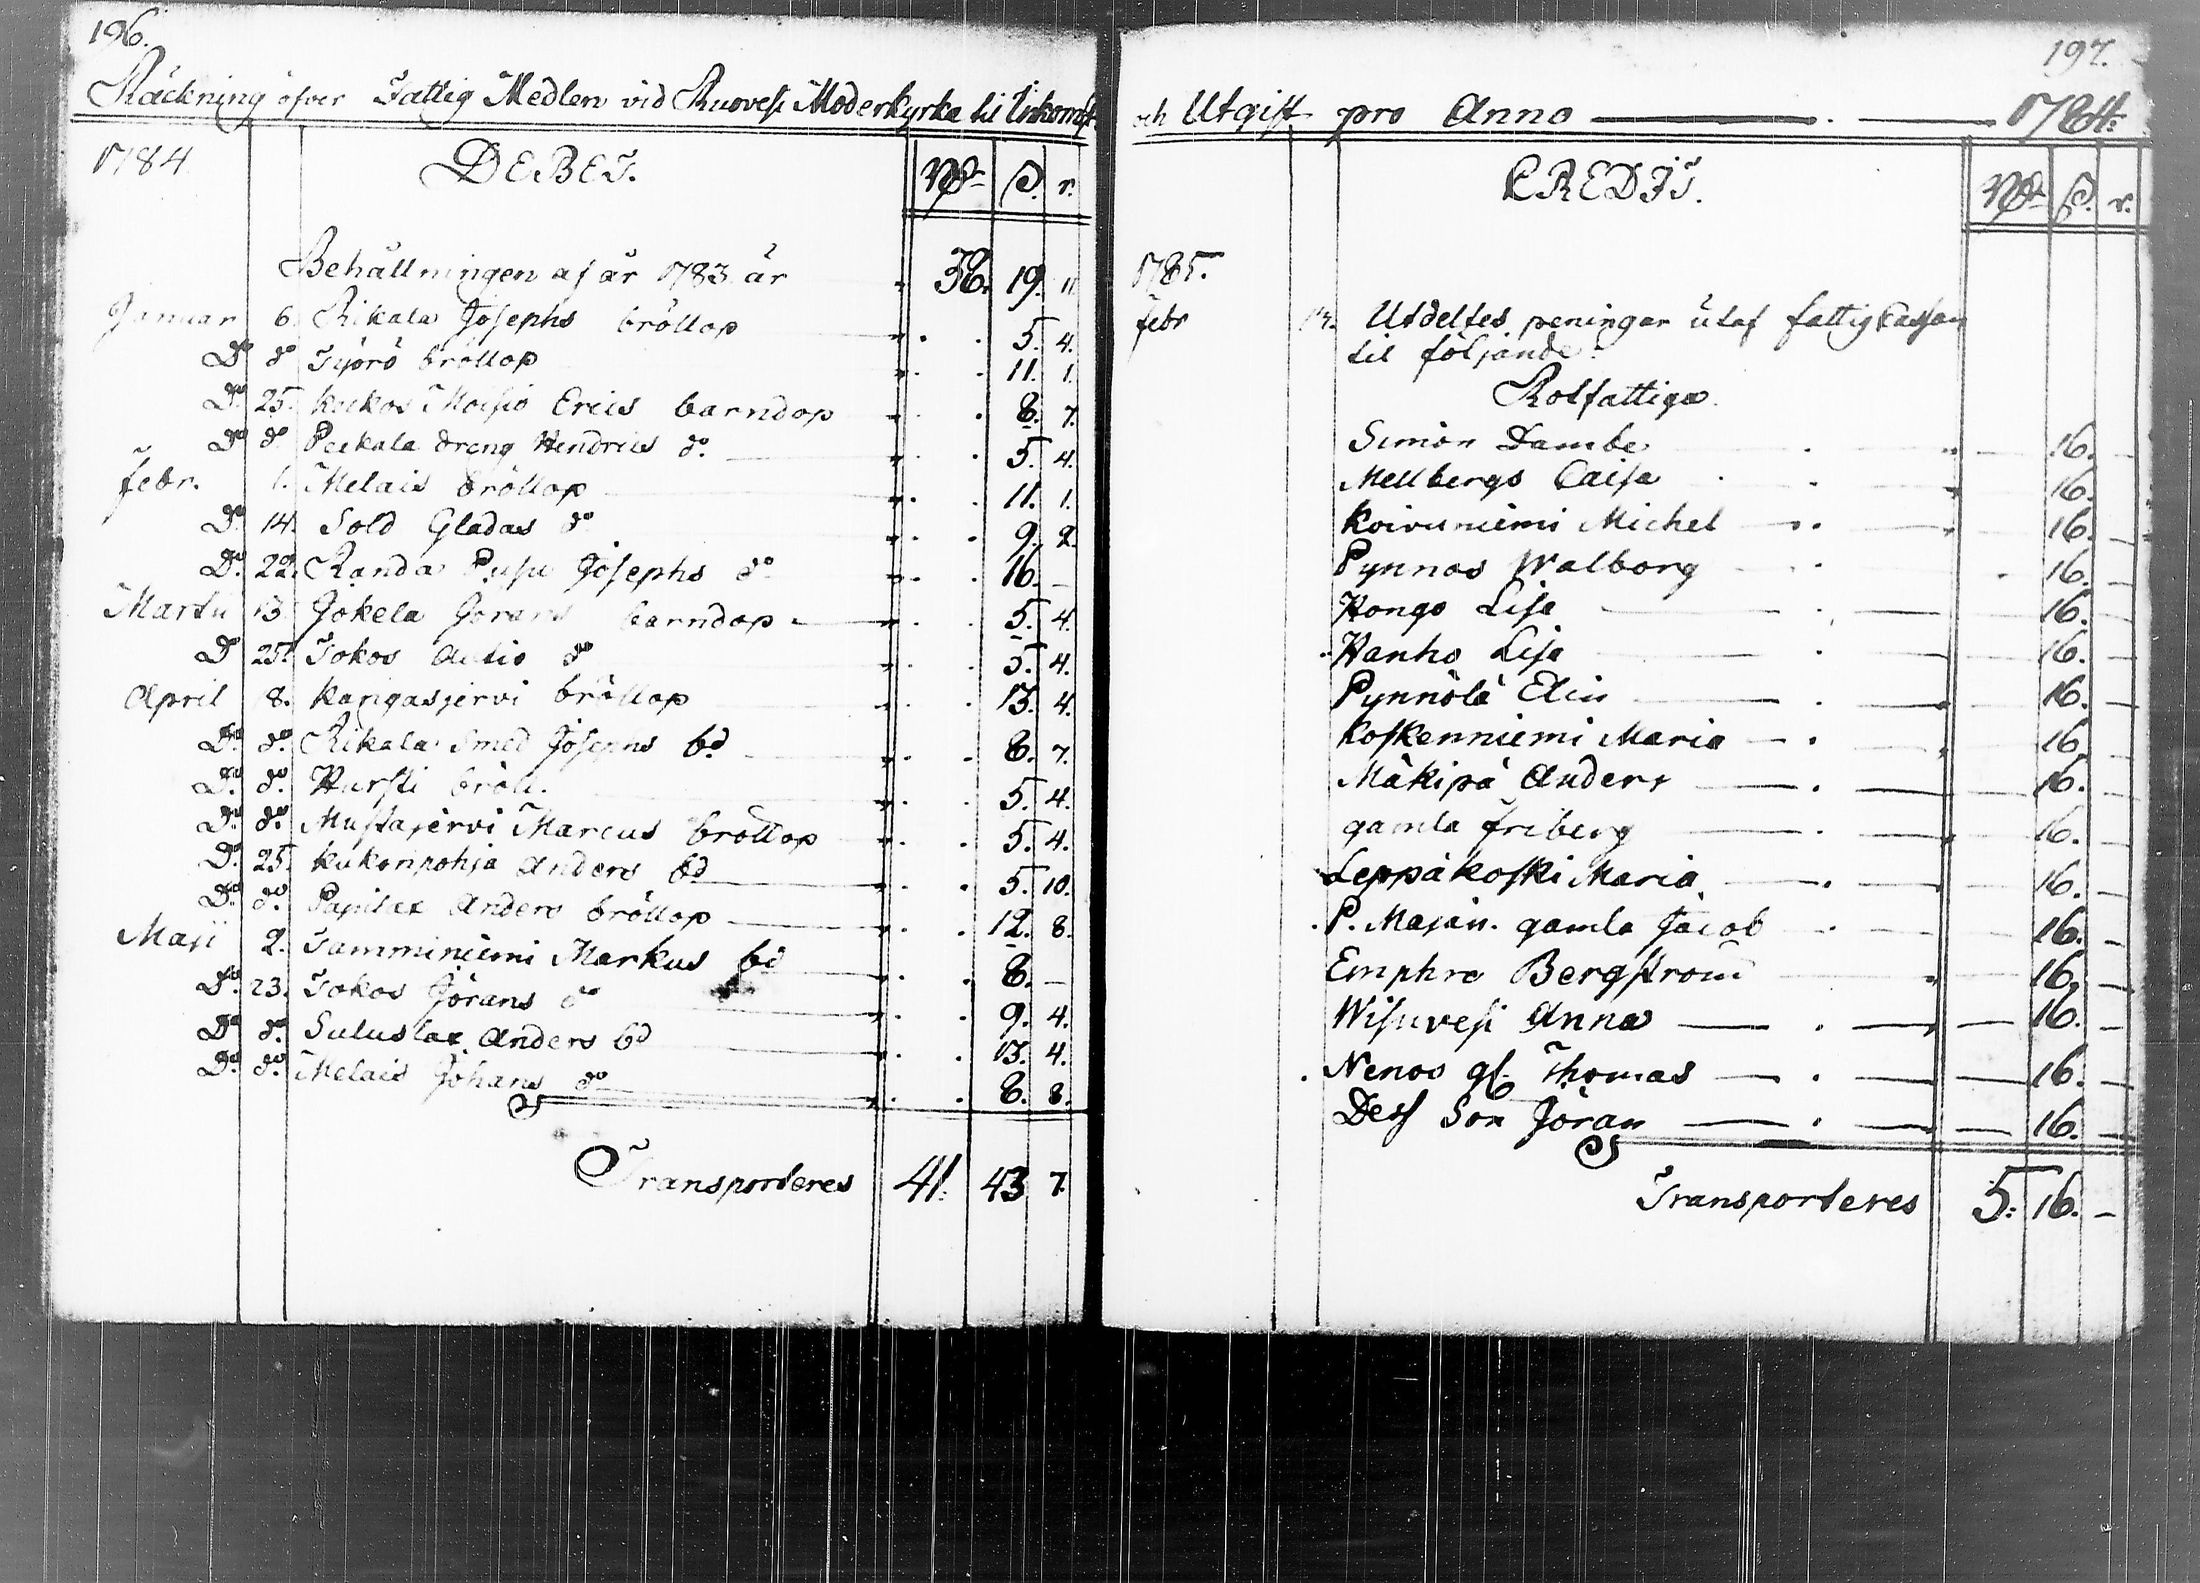 196.
Räckning öfver Fattig Medlen vid Ruovesi Moderkyrka til Inkomst
1784 DEBET. Rdr S. r.
Behållningen af år 1783 år 38. 19. 11.
Januar 6. Rikala Josephs bröllop 5. 4.
Do do Työrö bröllop 11. 1.
Do 25. Kockos Moisio Erics barndop 8. 7.
Do do Peckala dreng Hendrics do 5. 4.
Febr. 1. Melais bröllop 11. 1.
Do 14. Sold Gladas do 9. 2.
Do 22. Randa Pusu Josephs do 16. –
Martii 13. Jokela Jörans barndop 5. 4.
Do 25. Tokos Autio do 5. 4.
April 8. Kangasjervi bröllop 13. 4.
Do do Rikala Smed Josephs bd 8. 7.
Do do Hursti bröll. 5. 4.
Do do Mustajervi Marcus bröllop 5. 4.
Do 25. Kukonpohja Anders bd 5. 10.
Do do Papilax Anders bröllop 12. 8.
Maji 2. Tamminiemi Markus bd 8. –
Do 23. Tokos Jörans do 9. 4.
Do do Suluslax Anders bd 13. 4.
Do do Melais Johans do 8. 8.
Transporteres 41. 43 7.
197.
och Utgift pro Anno 1784.
CREDIT. Rdr S. r.
1785.
febr 13. Utdeltes peningar utaf fattigcassan
til följande:
Rotfattiga
Simon Dambe 16. –
Mellbergs Caisa 16. –
Koivuniemi Michel 16. –
Pynnos Walborg 16. –
Hongo Lisa 16. –
Hanho Lisa 16. –
Pynnölä Elin 16. –
Koskenniemi Maria 16. –
Mäkipä Anders 16. –
gamla friberg 16. –
Leppäkoski Maria 16. –
P. Majan. gamla Jacob 16. –
Emphro Bergström 16. –
Wisuvesi Anna 16. –
Nenos gl. Thomas 16. –
Dess Son Jöran 16. –
Transporteres 5. 16. –